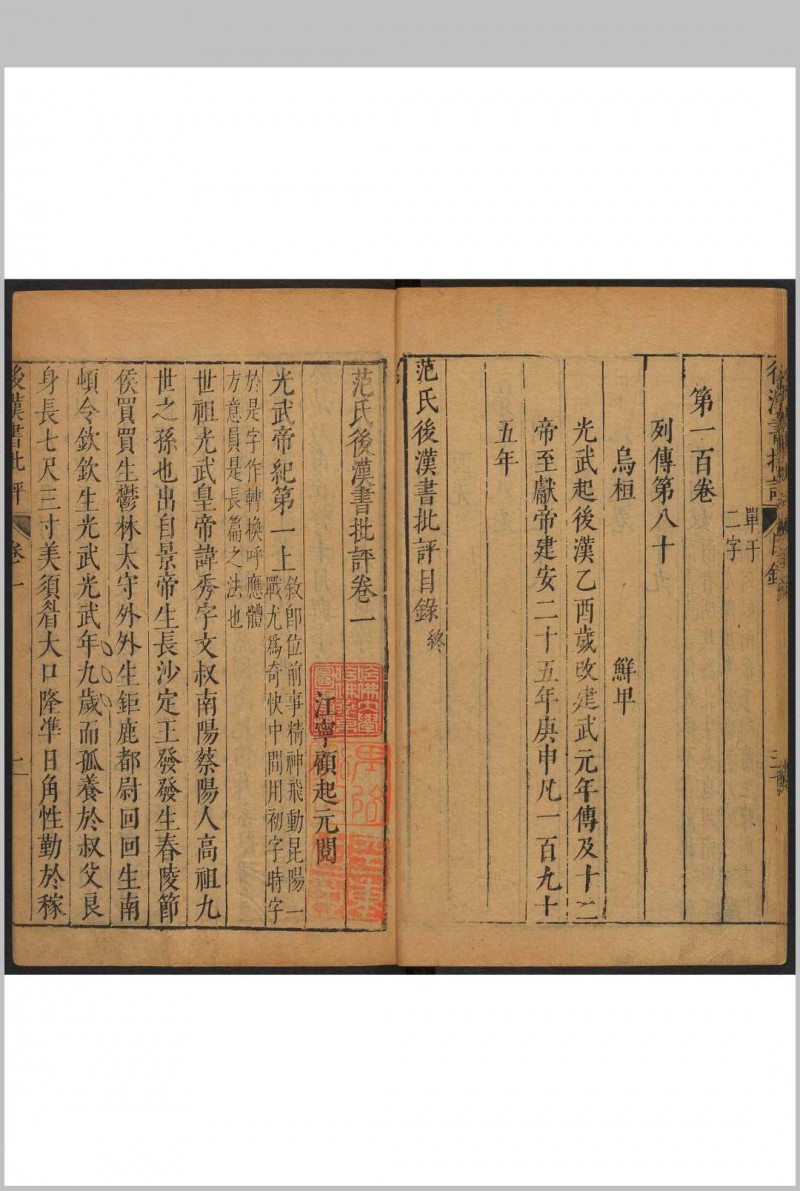 單于
二字
第一百卷
列傳第八十
烏桓 鮮卑
光武起後漢乙酉歲改建武元年傳及十二
帝至獻帝建安二十五年庚申凡一百九十
五年
范氏後漢書批評目錄終
范氏後漢書批評卷一
江寧顧起元閱
光武帝紀第一上
敘即位前事精神飛動昆陽一
戰尤爲奇快中間用初字時字
於是字作轉換呼應體
方意員是長篇之法也
世祖光武皇帝諱秀字文叔南陽蔡陽人高祖九
世之孫也出自景帝生長沙定王發發生舂陵節
侯買買生鬱林太守外外生鉅鹿都尉回回生南
頓令欽欽生光武光武年九歲而孤養於叔父良
身長七尺三寸美須眉大口隆準日角性勤於稼
後漢書批評 卷一 一